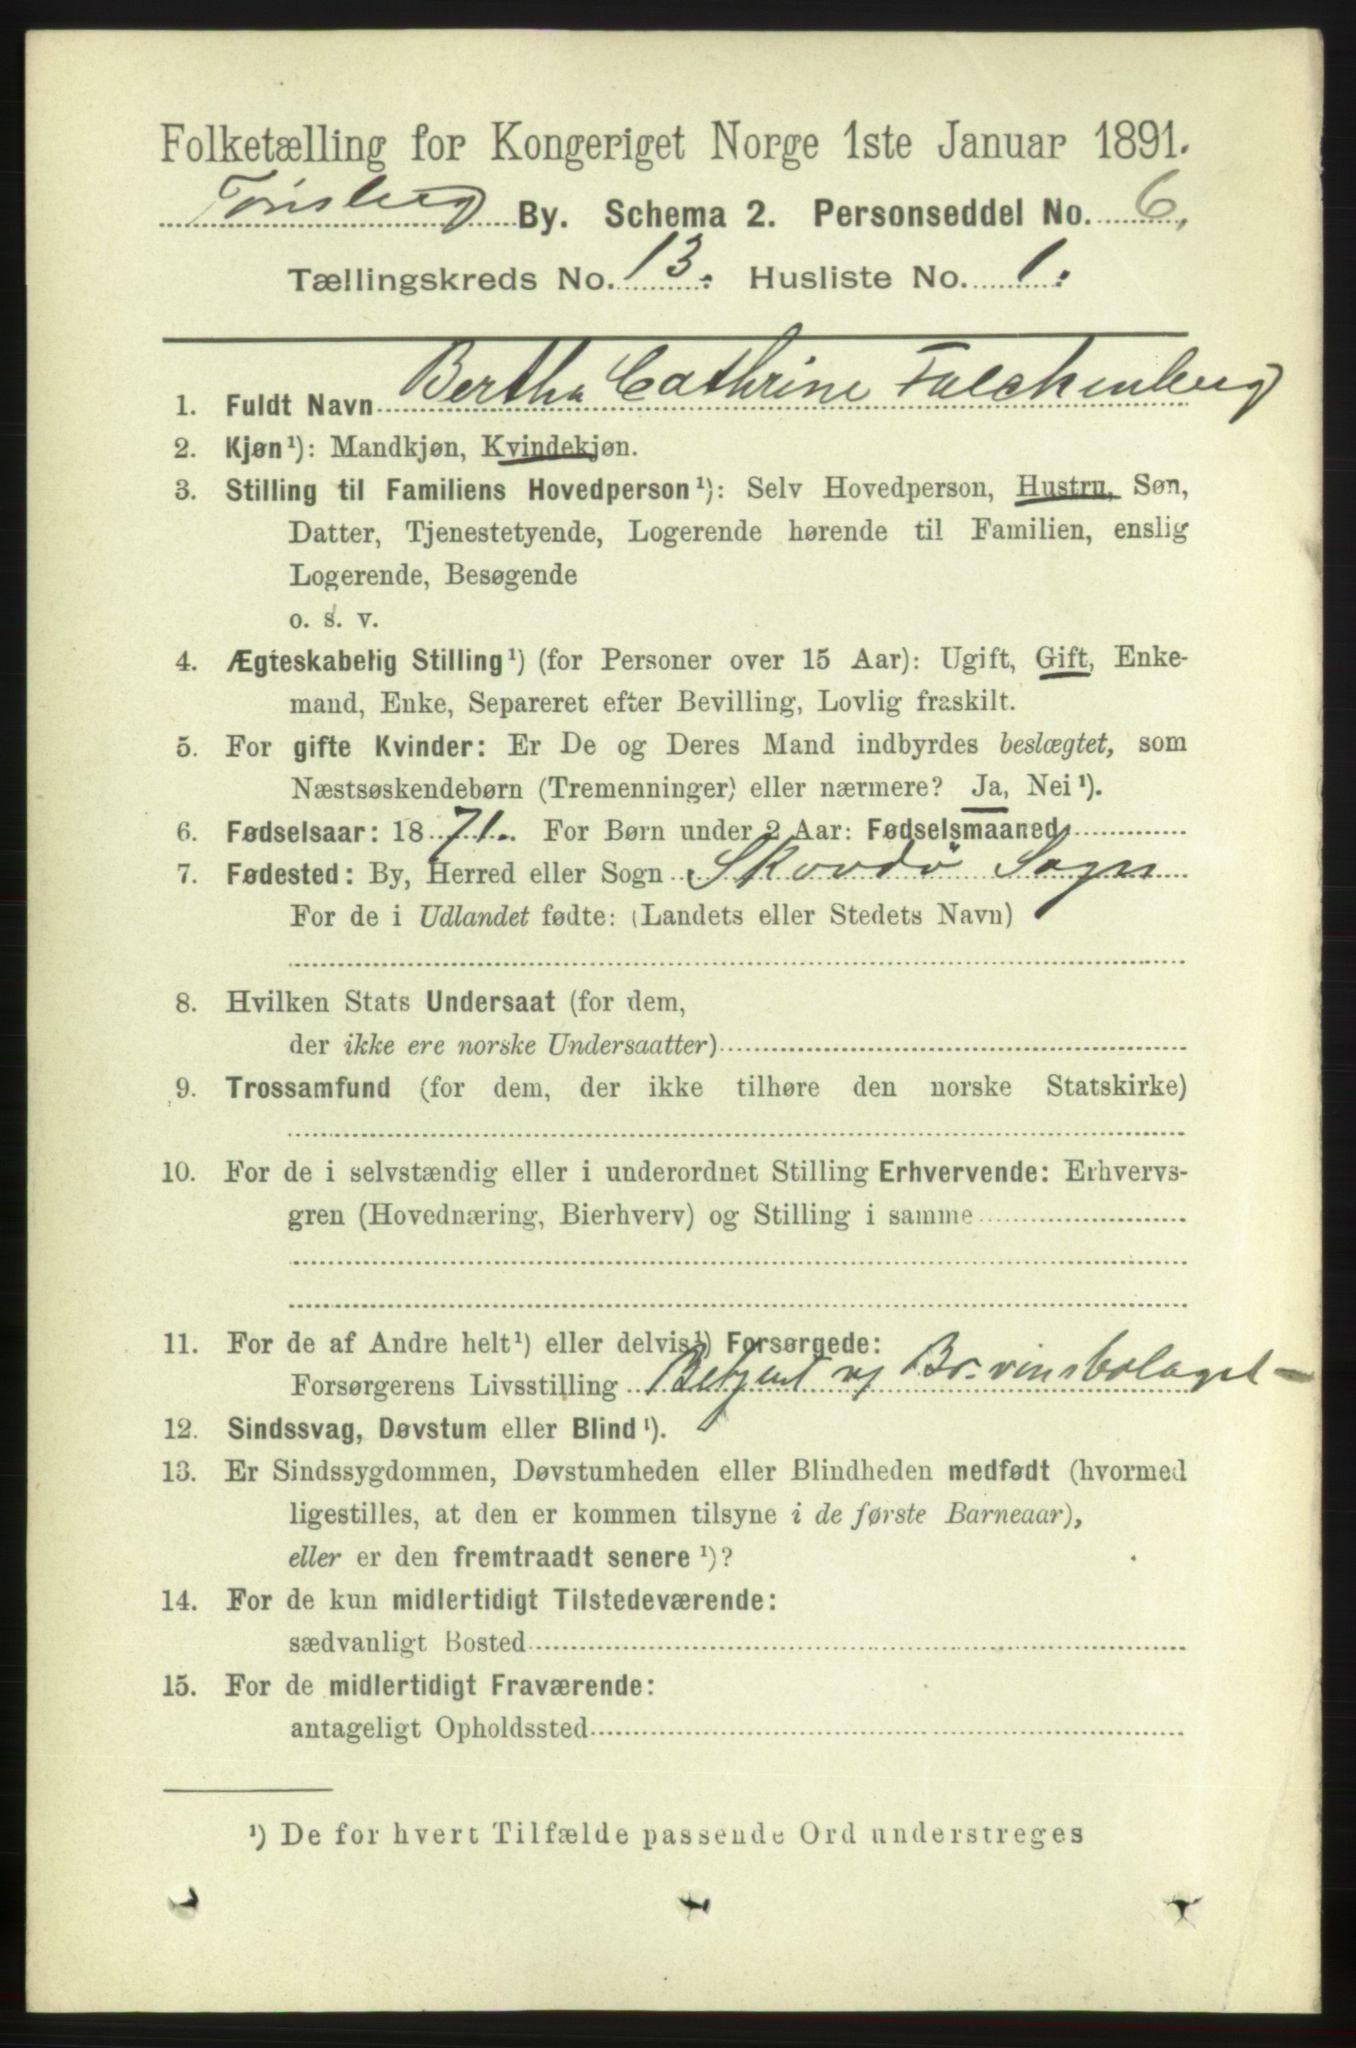 Folketælling for Kongeriget Norge 1ste Januar 1891.
Tønsberg By. Schema 2. Personseddel No. 6,
Tællingskreds No. 13. Husliste No. 1.
1. Fuldt Navn Bertha Cathrine Falckenberg
2. Kjøn¹): Mandkjøn, Kvindekjøn.
3. Stilling til Familiens Hovedperson¹): Selv Hovedperson, Hustru, Søn,
Datter, Tjenestetyende, Logerende hørende til Familien, enslig
Logerende, Besøgende
o. s. v.
4. Ægteskabelig Stilling¹) (for Personer over 15 Aar): Ugift, Gift, Enke-
mand, Enke, Separeret efter Bevilling, Lovlig fraskilt.
5. For gifte Kvinder: Er De og Deres Mand indbyrdes beslægtet, som
Næstsøskendebørn (Tremenninger) eller nærmere? Ja, Nei¹).
6. Fødselsaar: 1871. For Børn under 2 Aar: Fødselsmaaned
7. Fødested: By, Herred eller Sogn Skovdö Sogn
For de i Udlandet fødte: (Landets eller Stedets Navn)
8. Hvilken Stats Undersaat (for dem,
der ikke ere norske Undersaatter)
9. Trossamfund (for dem, der ikke tilhøre den norske Statskirke)
10. For de i selvstændig eller i underordnet Stilling Erhvervende: Erhvervs-
gren (Hovednæring, Bierhverv) og Stilling i samme
11. For de af Andre helt¹) eller delvis¹) Forsørgede:
Forsørgerens Livsstilling Betjent v/ Br.vinsbolaget
12. Sindssvag, Døvstum eller Blind¹).
13. Er Sindssygdommen, Døvstumheden eller Blindheden medfødt (hvormed
ligestilles, at den er kommen tilsyne i de første Barneaar),
eller er den fremtraadt senere¹)?
14. For de kun midlertidigt Tilstedeværende:
sædvanligt Bosted
15. For de midlertidigt Fraværende:
antageligt Opholdssted
¹) De for hvert Tilfælde passende Ord understreges